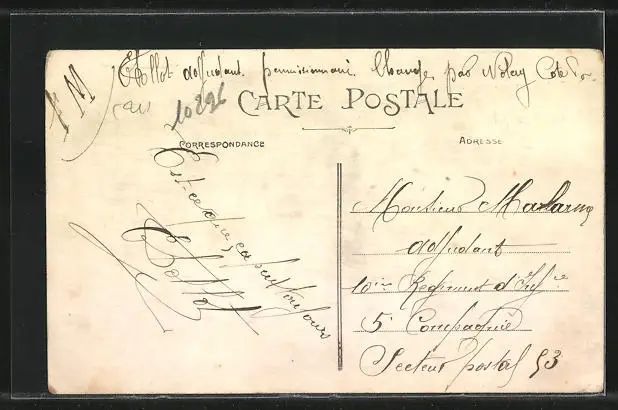 FM
Chollot adjudant permissionnaire Change par Nolay Côte d'or
10896
CARTE POSTALE
CORRESPONDANCE
ADRESSE
Est-ce que ça va toujours
Chollot
Monsieur
adjudant
10me Regiment d'Infie
5e Compagnie
Secteur postal 93